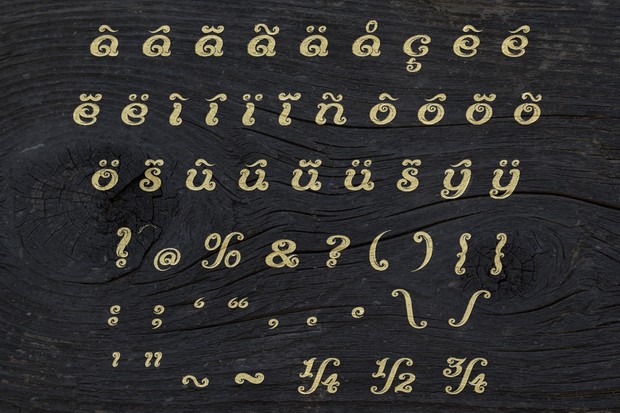 à á â ã ä å ç è é
ê ë ì í ï î ñ ò ó ô õ
ö š ù ú û ü š ý ÿ
! @ % & ? ( ) { }
: ; ‘ “ , . · \ /
' " _ ~ ¼ ½ ¾